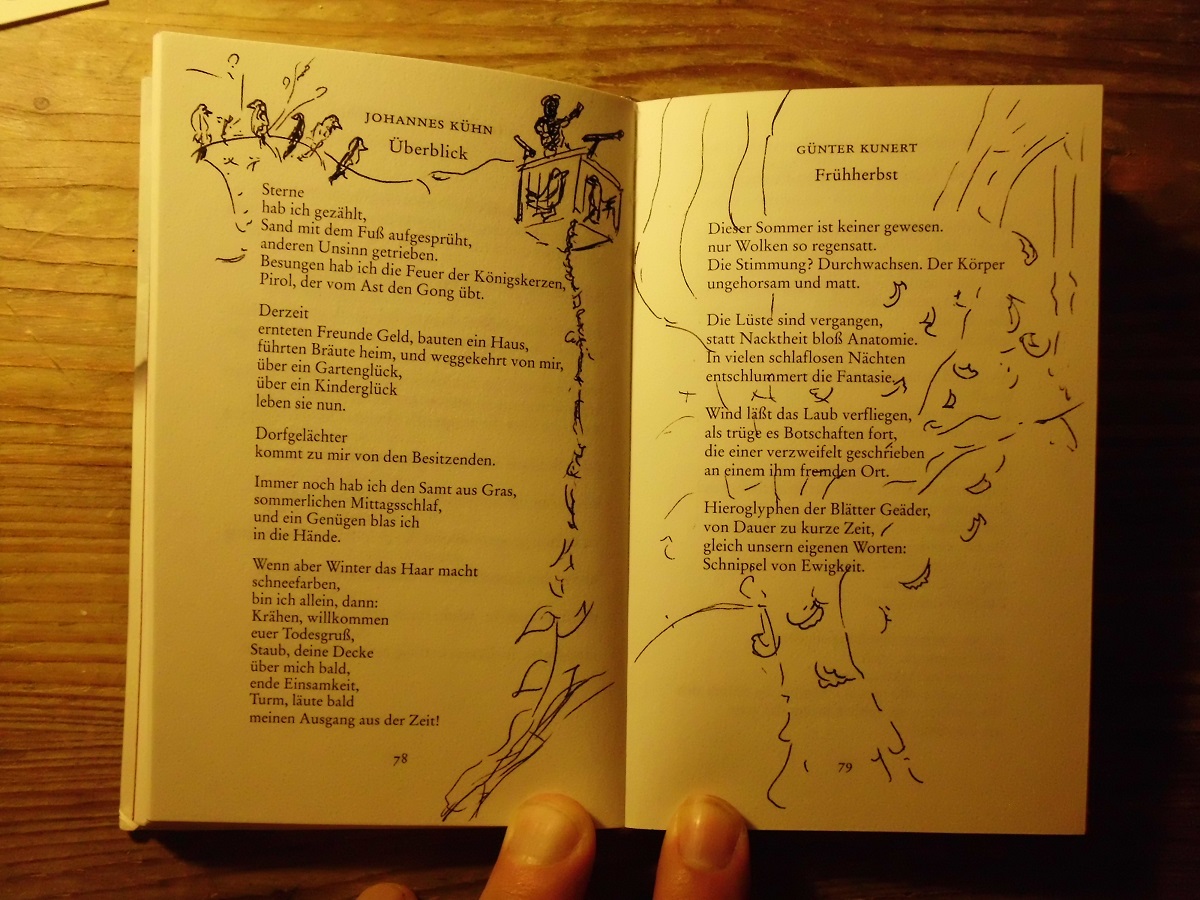 JOHANNES KÜHN
Überblick
Sterne
hab ich gezählt,
Sand mit dem Fuß aufgesprüht,
anderen Unsinn getrieben.
Besungen hab ich die Feuer der Königskerzen,
Pirol, der vom Ast den Gong übt.
Derzeit
ernteten Freunde Geld, bauten ein Haus,
führten Bräute heim, und weggekehrt von mir,
über ein Gartenglück,
über ein Kinderglück
leben sie nun.
Dorfgelächter
kommt zu mir von den Besitzenden.
Immer noch hab ich den Samt aus Gras,
sommerlichen Mittagsschlaf,
und ein Genügen blas ich
in die Hände.
Wenn aber Winter das Haar macht
schneefarben,
bin ich allein, dann:
Krähen, willkommen
euer Todesgruß,
Staub, deine Decke
über mich bald,
ende Einsamkeit,
Turm, läute bald
meinen Ausgang aus der Zeit!
78
GÜNTER KUNERT
Frühherbst
Dieser Sommer ist keiner gewesen.
nur Wolken so regensatt.
Die Stimmung? Durchwachsen. Der Körper
ungehorsam und matt.
Die Lüste sind vergangen,
statt Nacktheit bloß Anatomie.
In vielen schlaflosen Nächten
entschlummert die Fantasie.
Wind läßt das Laub verfliegen,
als trüge es Botschaften fort,
die einer verzweifelt geschrieben
an einem ihm fremden Ort.
Hieroglyphen der Blätter Geäder,
von Dauer zu kurze Zeit,
gleich unsern eigenen Worten:
Schnipsel von Ewigkeit.
79